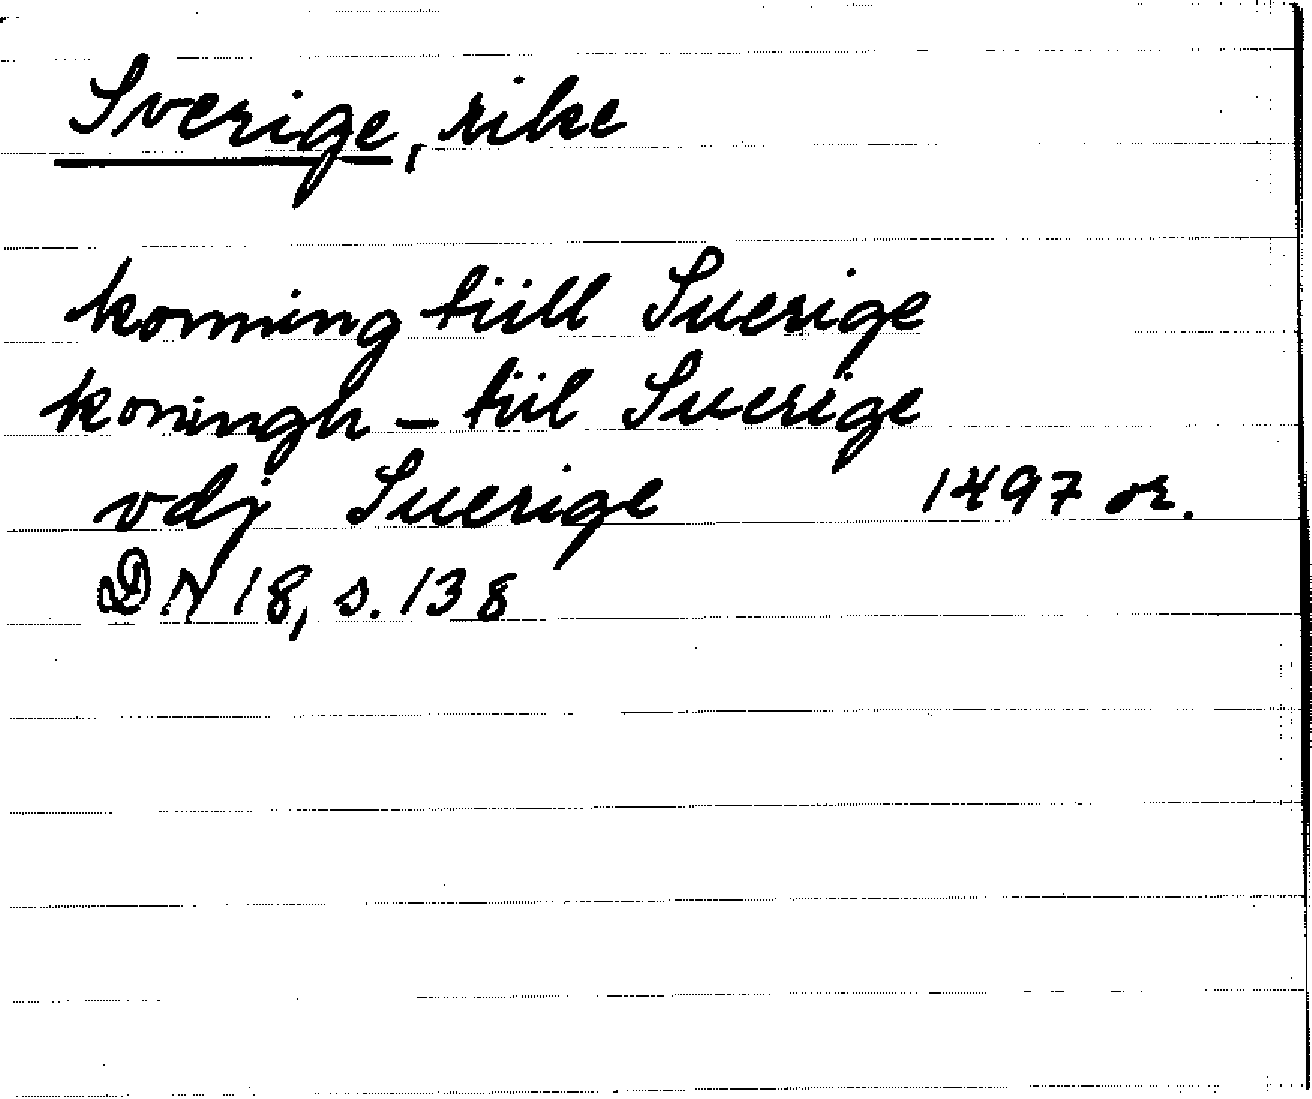 Sverige, rike
konning tiill Suerige
koningh - tiil Suerige
vdj Suerige 1497 or.
DN 18, s. 138